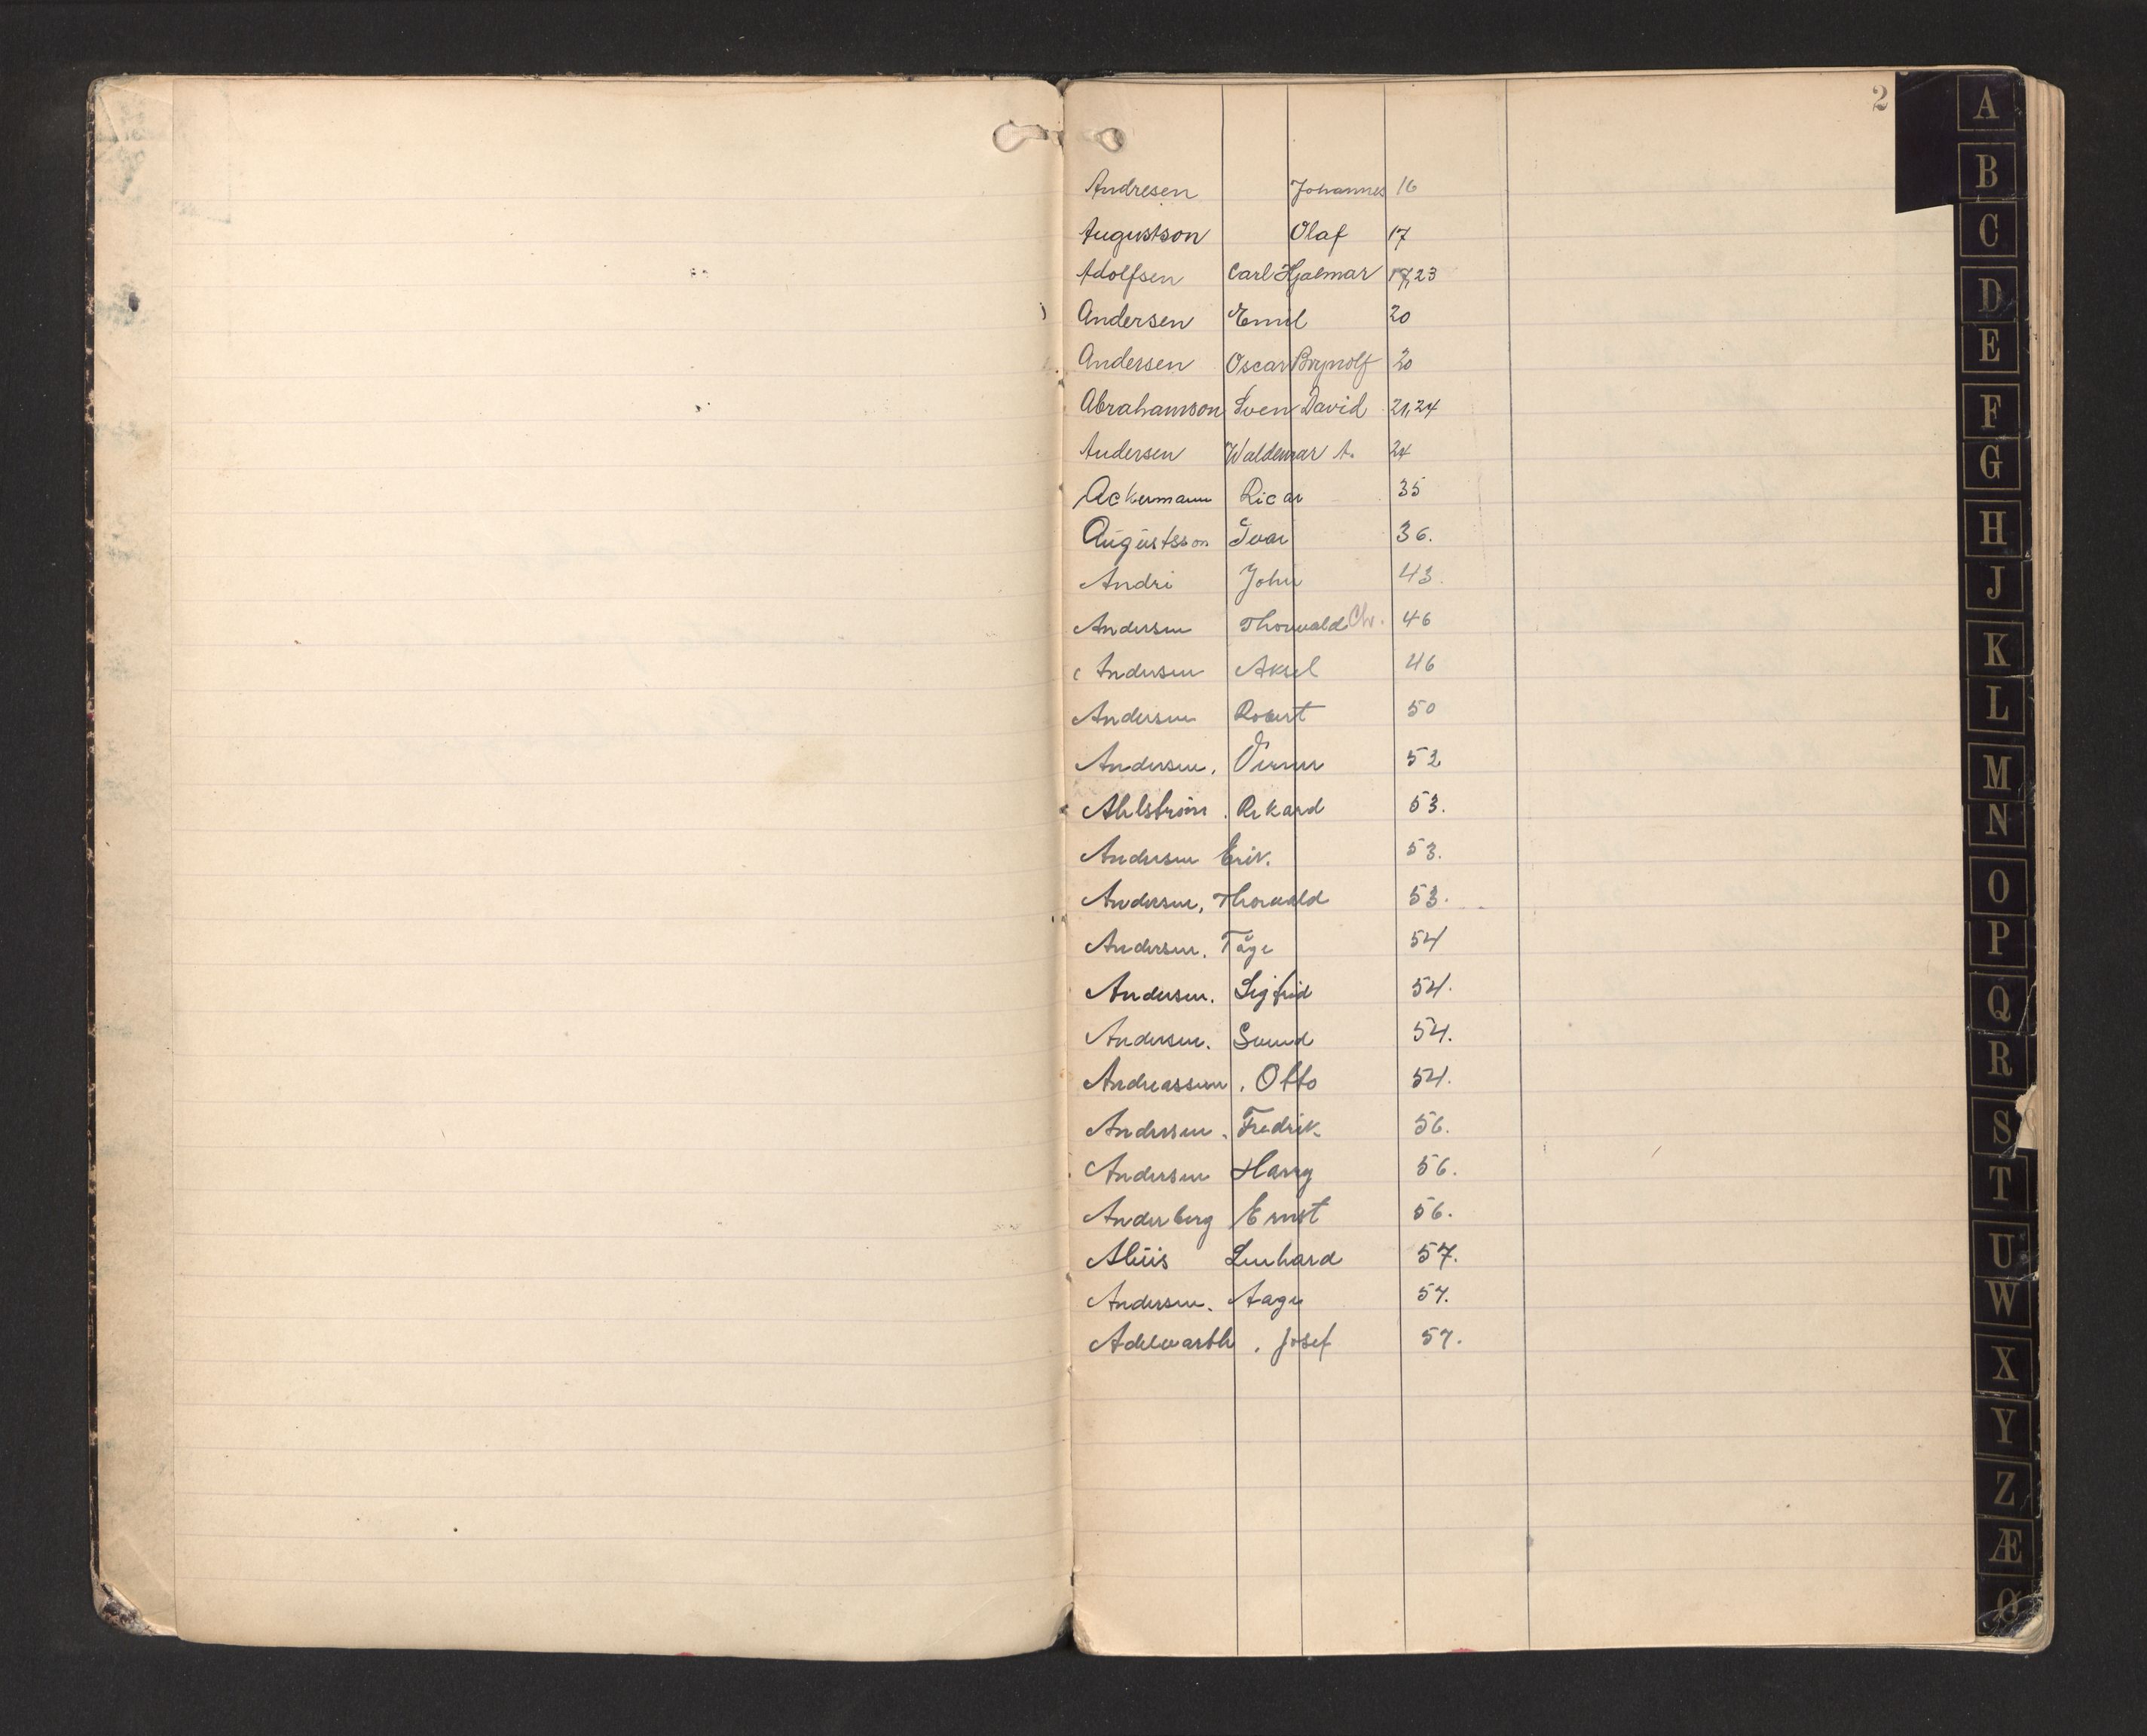 2
Andresen Johannes 16
Augustson Olaf 17
Adolfsen Carl Hjalmar 17,23
Andersen Emil 20
Andersen Oscar Brynolf 20
Abrahamson Sven David 21,24
Andersen Waldemar A. 24
Ackermann Ricar 35
Augustsson Ivar 36.
Andri John 43.
Andersen Thorvald Chr. 46
Andersen Aksel 46
Andersen Robert 50
Andersen, 52
Ahlström. Rikard 53.
Andersen Erik. 53.
Andersen, Thorvald 53.
Andersen. Tåge 54
Andersen. Sigfrid 54.
Andersen. Svend 54.
Andreassen. Otto 54.
Andersen. Fredrik 56.
Andersen Harry 56.
Anderberg Ernst 56.
Lenhard 57.
Andersen. Aage 57.
Adelwarth. Josef 57.
A
B
C
D
E
F
G
H
J
K
L
M
N
O
P
Q
R
S
T
U
W
X
Y
Z
Æ
Ø